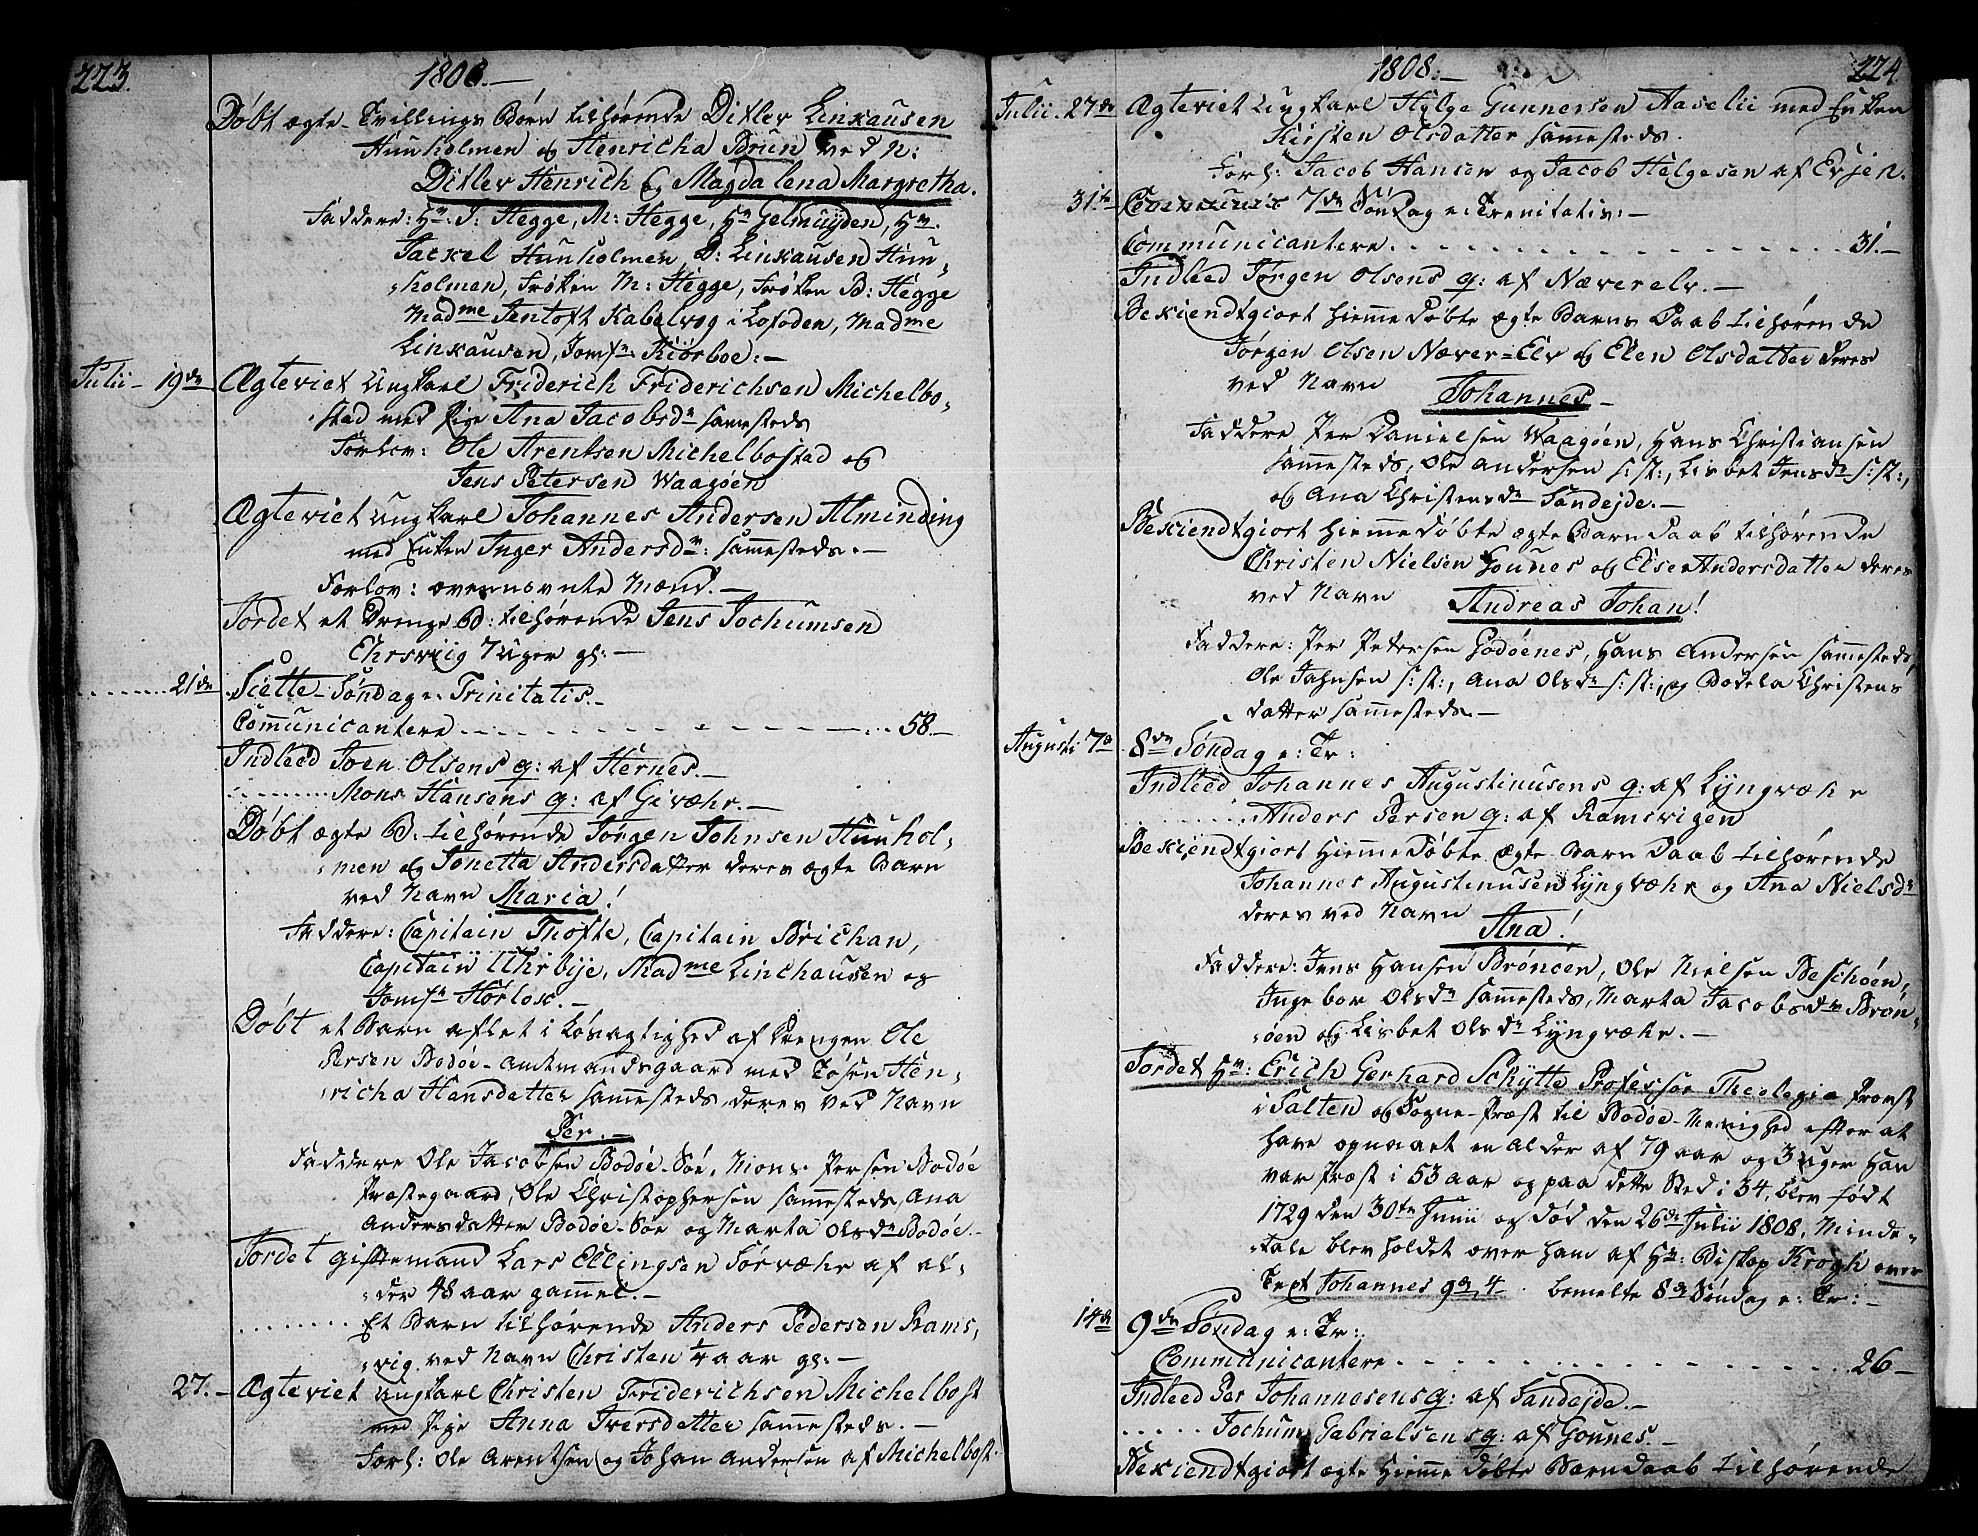 223. 1808.-
Døbt ægte Tvillings Børn tilhørende Ditlev Linkausen
Hunholmen og Henricha Brun ved N:
Ditlev Henrich og Magdalena Margretha.
Faddere: Hr. J: Hegge, M: Hegge, Hr Gelmuyden, Hr.
Jackel Hunholmen, D: Linkausen Hun-
-holmen, Frøken M: Hegge, Frøken B: Hegge
Madme Jentoft Kabelvog i Lofoden, Madme
Linkausen, Jomfr Kiørboe:-
Julii- 19de Ægteviet Ungkarl Friderich Friderichsen Michelbo-
-stad med Pige Ana Jacobsdr sammesteds
Forlov: Ole Arentsen Michelbostad og
Jens Petersen Waagøen
Ægteviet Ungkarl Johannes Andersen Alminding
med Enken Inger Andersdr: sammesteds.-
Forlov: ovennævnte Mænd.-
Jordet et Drenge B: tilhørende Jens Jochumsen
Ehrsviig 7 Uger gl:-
21de Siette Søndag e. Trinitatis.-
Communicantere 58.-
Indleed Joen Olsens q: af Hernes.-
Mons Hansens q: af Givæhr.-
Døbt ægte B. tilhørende Jørgen Johnsen Hunhol-
-men og Jonetta Andersdatter deres ægte Barn
ved Navn Maria!
Faddere: Capitain Thofte, Capitain Brichan,
Capitain Uhrbye, Madme Linchausen og
Jomfr Hørlock.-
Døbt et Barn aflet i Løsagtighed af Drengen Ole
Persen Bodøe-Amtmandsgaard med Tøsen Hen-
-richa Hansdatter sammesteds deres ved Navn
Per.-
Faddere Ole Jacobsen Bodøe-Søe, Mons Persen Bodøe
Præstegaard, Ole Christophersen sammesteds, Ana
Andersdatter Bodøe-Søe og Marta Olsdr Bodøe.-
Jordet giftemand Lars Ellingsen Sørvæhr af al-
-der 48 aar gammel.-
Et Barn tilhørende Anders Pedersen Rams-
-vig ved Navn Christen 1/4 aar gl:-
27.- Ægteviet Ungkarl Christen Friderichsen Michelbost
med Pige Anna Iversdatter sammesteds.-
Forl: Ole Arentsen og Johan Andersen af Michelbost.
1808.- 224
Julii. 27de Ægteviet Ungkarl Hylge Gunnersen Aaselii med Enken
Kirsten Olsdatter sammesteds.
Forl: Jacob Hansen og Jacob Helgesen af Evjen.
31te 7de Søndag e: Trenitatis:-
Communicantere 31.-
Indleed Jørgen Olsens q: af Næverelv.-
Bekiendtgiort hiemmedøbte ægte Barns Daab tilhørende
Jørgen Olsen Næver-Elv og Elen Olsdatter deres
ved Navn Johannes-
Faddere Per Danielsen Waagøen, Hans Christiansen
sammesteds, Ole Andersen s:st:, Lisbet Jensdr s:st:,
og Ana Christensdr Sandejde.-
Bekiendtgiort hiemmedøbte ægte Barn Daab tilhørende
Christen Nielsen Gounes og Else Andersdatter deres
ved Navn Andreas Johan!
Faddere: Per Petersen Godøenes, Hans Andersen sammesteds,
Ole Jahnsen s:st:, Ana Olsdr s:st:, og Bodela Christens
datter sammesteds.-
Augusti 7de 8de Søndag e: Tr:
Indleed Johannes Augustinusens q: af Lyngvæhr
Anders Persen q: af Ramsvigen
Bekiendtgiort hiemmedøbte ægte Barn Daab tilhørende
Johannes Augustinusen Lyngvæhr og Ana Nielsdr
deres ved Navn Ana!
Faddere: Jens Hansen Brøncen, Ole Nielsen Beschøen,
Ingebor Olsdr sammesteds, Marta Jacobsdr Brøn-
-øen og Lisbet Olsdr Lyngvæhr.-
Jordet Hr: Erich Gerhard Schytte Professor Theologia Provst
i Salten og Sogne-Præst til Bodøe-Menighed efter at
have opnaaet en Alder af 79 aar og 3 uger han
var Præst i 53 aar og paa dette Sted i 34, blev født
1729 den 30te Junii og død den 26de Julii 1808. Minde-
-Tale blev holdet over ham af Hr: Biskop Krogh over
Text Johannes 9de, 4- bemelte 8de Søndag e: Tr:-
14de 9de Søndag e: Tr:
Communicantere 26-
Indleed Per Johannesens q: af Sandejde.-
Jochum Gabrielsens q: af Gounes.-
Bekiendtgiort ægte hiemmedøbte Barn daab tilhørende